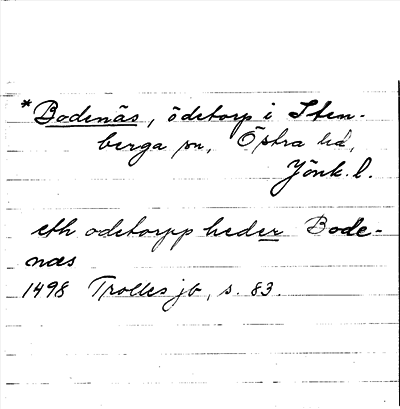 *Bodenäs, ödetorp i Sten-
berga sn, Östra hd,
Jönk. l.
eth odetorpp heder Bode-
næs
1498 Trolles jb, s. 83.